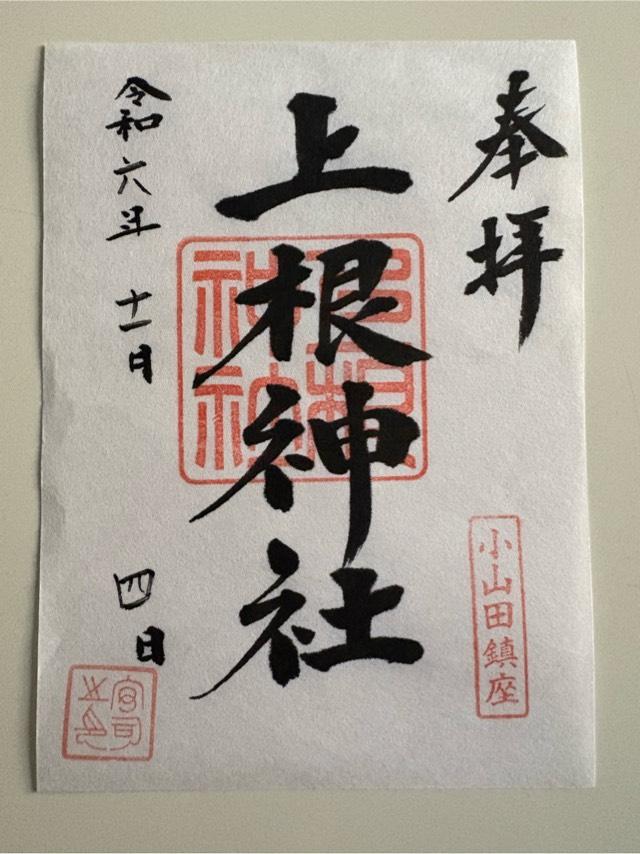 奉拝
小山田鎮座
上根神社
上根神社
令和六年 十一月 四日
宮司之印